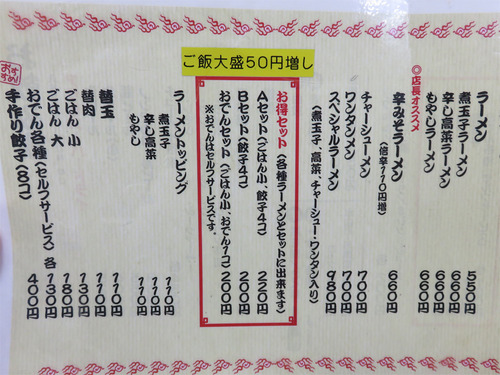 ご飯大盛50円増し
ラーメン 550円
煮玉子ラーメン 660円
辛し高菜ラーメン 660円
◎店長オススメ
もやしラーメン 660円
辛みそラーメン 660円
(倍辛110円増)
チャーシューメン 700円
ワンタンメン 700円
スペシャルラーメン 980円
(煮玉子、高菜、チャーシュー・ワンタン入り)
お得セット(各種ラーメンとセットに出来ます)
Aセット(ごはん小、餃子4コ) 220円
Bセット(餃子4コ) 200円
おでんセット(ごはん小、おでん1コ) 200円
※おでんはセルフサービスです。
ラーメントッピング
煮玉子 110円
辛し高菜 110円
もやし 110円
替玉 110円
替肉 110円
ごはん 小 130円
ごはん 大 180円
おでん各種(セルフサービス) 各 130円
おすすめ!
手作り餃子(8コ) 400円